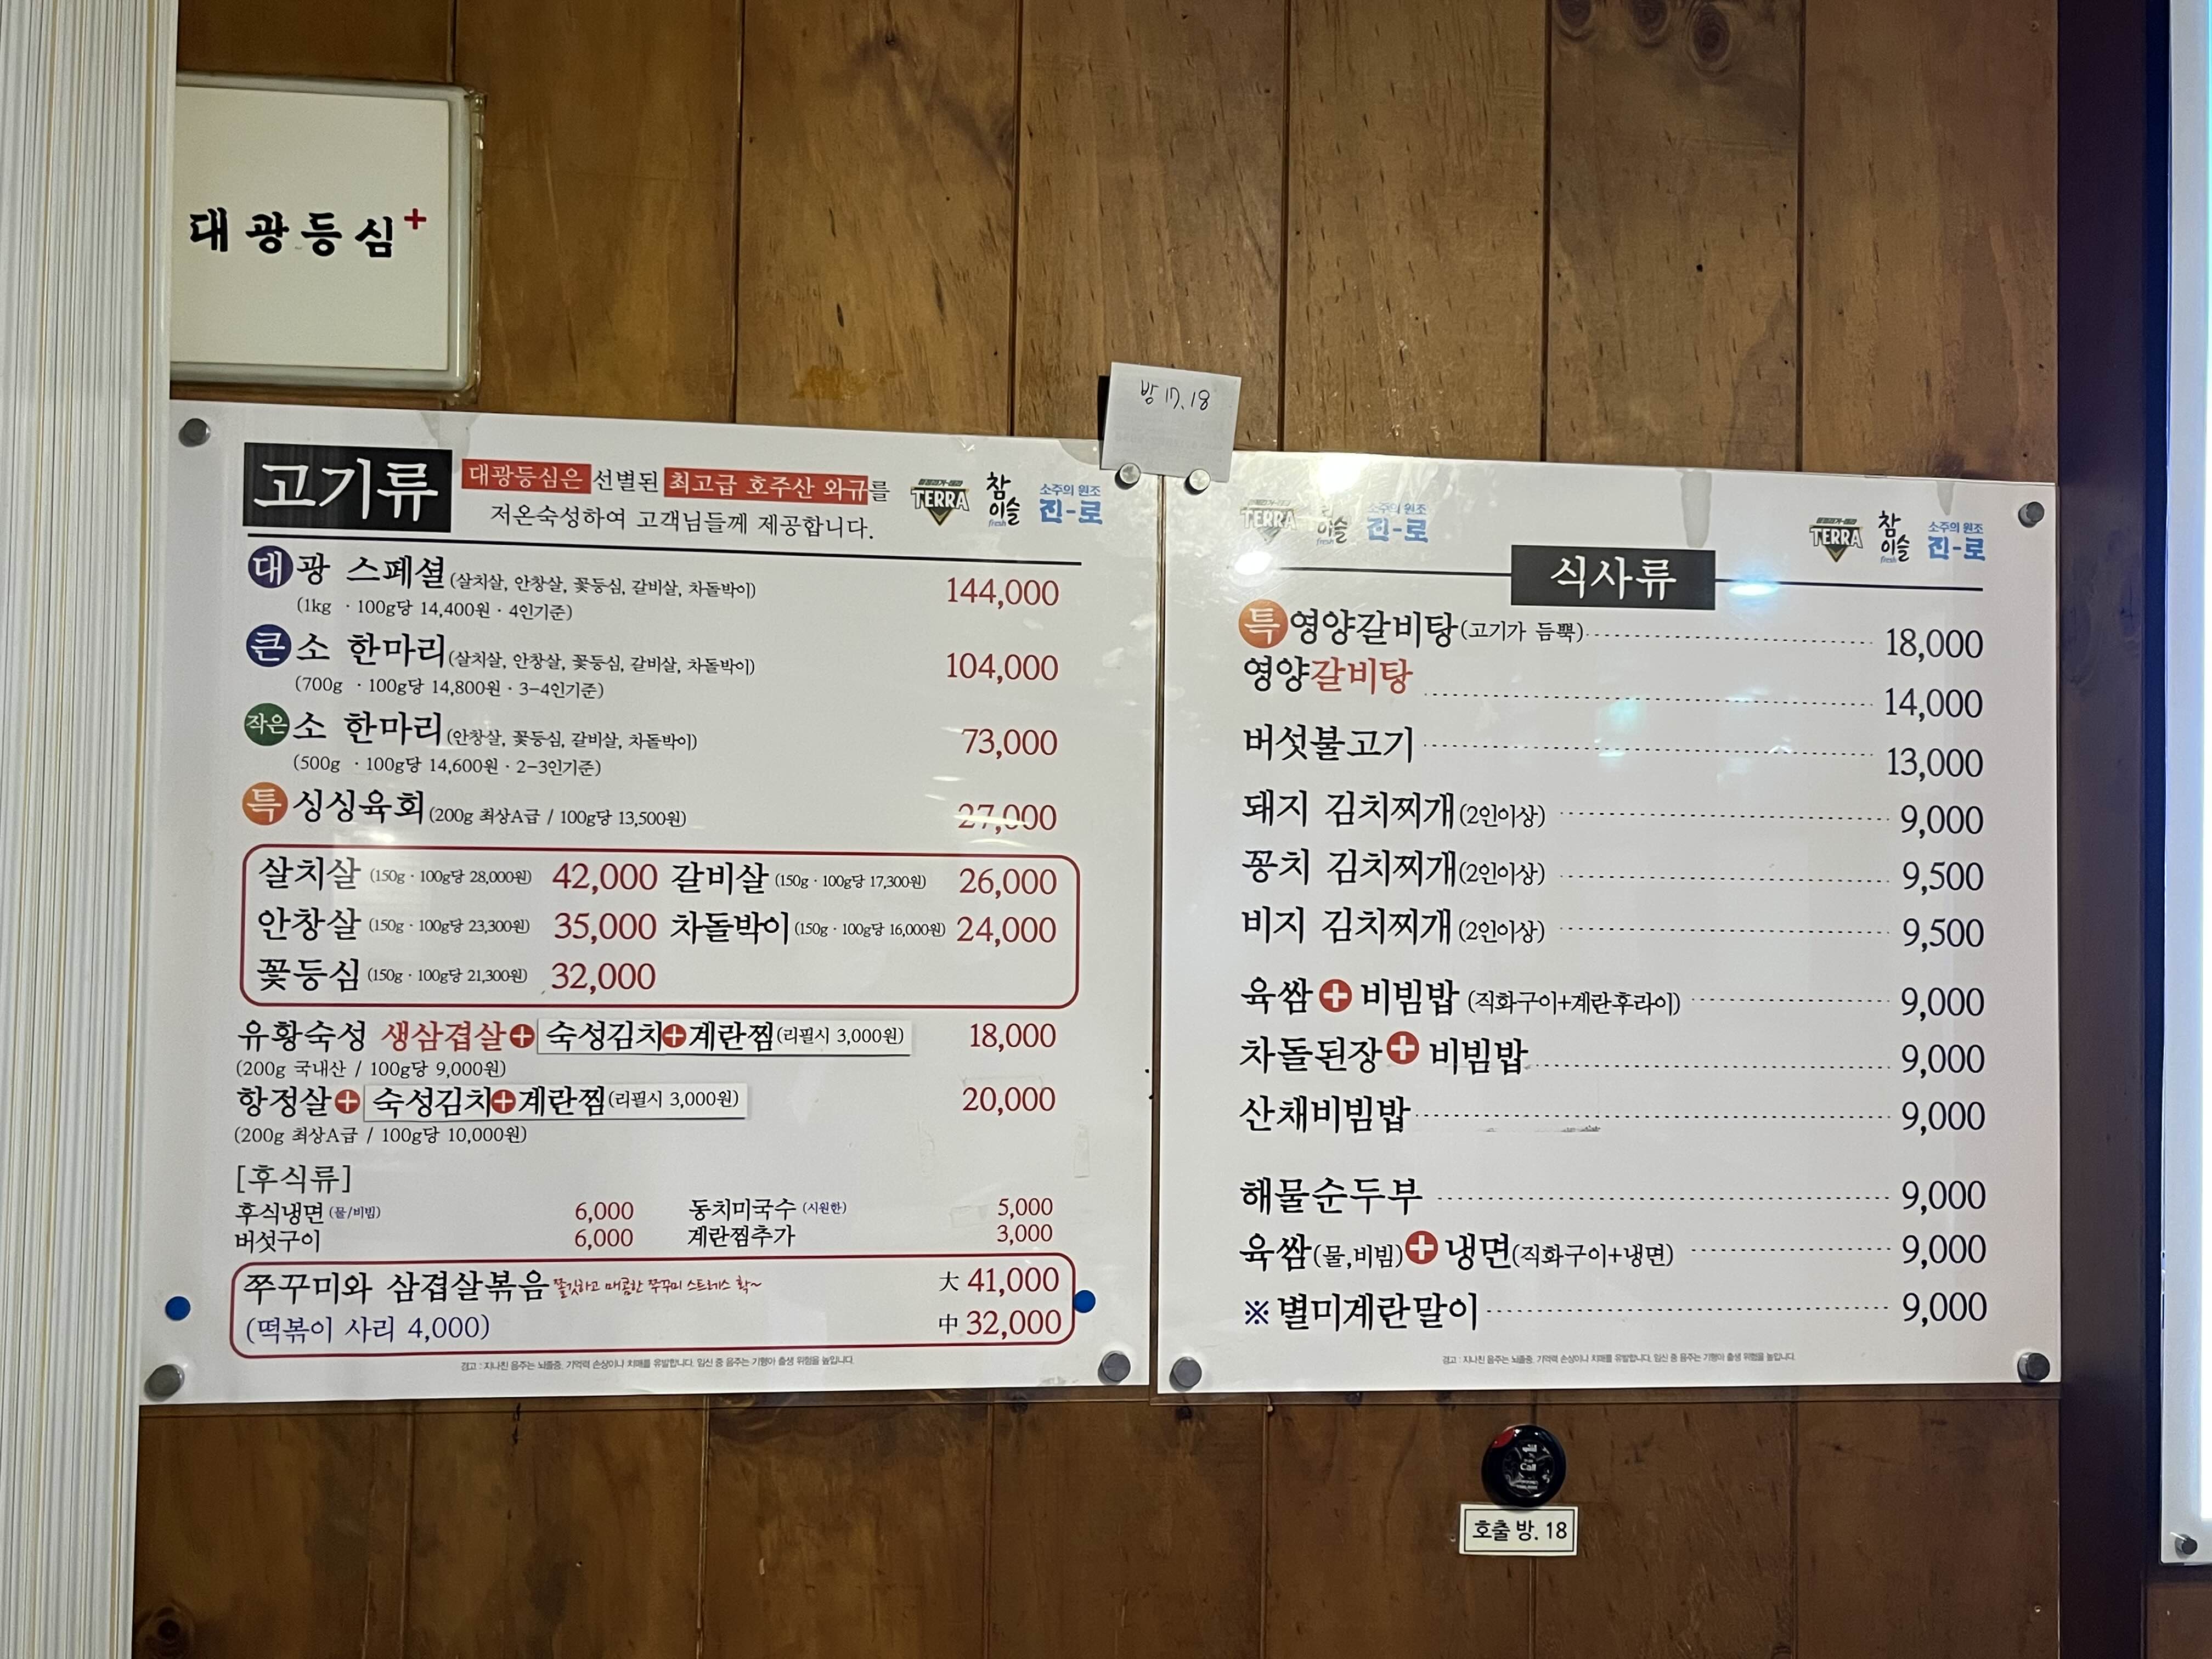 대광등심+
방 17, 18
고기류
대광등심은 선별된 최고급 호주산 와규를
저온숙성하여 고객님들께 제공합니다.
TERRA
참이슬 fresh
소주의 원조
진-로
대광 스페셜(살치살, 안창살, 꽃등심, 갈비살, 차돌박이) 144,000
(1kg · 100g당 14,400원 · 4인기준)
큰소 한마리(살치살, 안창살, 꽃등심, 갈비살, 차돌박이) 104,000
(700g · 100g당 14,800원 · 3-4인기준)
작은소 한마리(안창살, 꽃등심, 갈비살, 차돌박이) 73,000
(500g · 100g당 14,600원 · 2-3인기준)
특 싱싱육회(200g 최상A급 / 100g당 13,500원) 27,000
살치살 (150g · 100g당 28,000원) 42,000 갈비살 (150g · 100g당 17,300원) 26,000
안창살 (150g · 100g당 23,300원) 35,000 차돌박이 (150g · 100g당 16,000원) 24,000
꽃등심 (150g · 100g당 21,300원) 32,000
유황숙성 생삼겹살+숙성김치+계란찜(리필시 3,000원) 18,000
(200g 국내산 / 100g당 9,000원)
항정살+숙성김치+계란찜(리필시 3,000원) 20,000
(200g 최상A급 / 100g당 10,000원)
[후식류]
후식냉면 (물/비빔) 6,000 동치미국수 (시원한) 5,000
버섯구이 6,000 계란찜추가 3,000
쭈꾸미와 삼겹살볶음 쫄깃하고 매콤한 쭈꾸미 스트레스 확~ 大 41,000
(떡볶이 사리 4,000) 中 32,000
경고 : 지나친 음주는 뇌졸중, 기억력 손상이나 치매를 유발합니다. 임신 중 음주는 기형아 출생 위험을 높입니다.
TERRA
이슬 fresh
소주의 원조
진-로
TERRA
참이슬 fresh
소주의 원조
진-로
식사류
특영양갈비탕(고기가 듬뿍) 18,000
영양갈비탕 14,000
버섯불고기 13,000
돼지 김치찌개(2인이상) 9,000
꽁치 김치찌개(2인이상) 9,500
비지 김치찌개(2인이상) 9,500
육쌈+비빔밥 (직화구이+계란후라이) 9,000
차돌된장+비빔밥 9,000
산채비빔밥 9,000
해물순두부 9,000
육쌈(물,비빔)+냉면(직화구이+냉면) 9,000
※별미계란말이 9,000
경고 : 지나친 음주는 뇌졸중, 기억력 손상이나 치매를 유발합니다. 임신 중 음주는 기형아 출생 위험을 높입니다.
Call
호출 방. 18